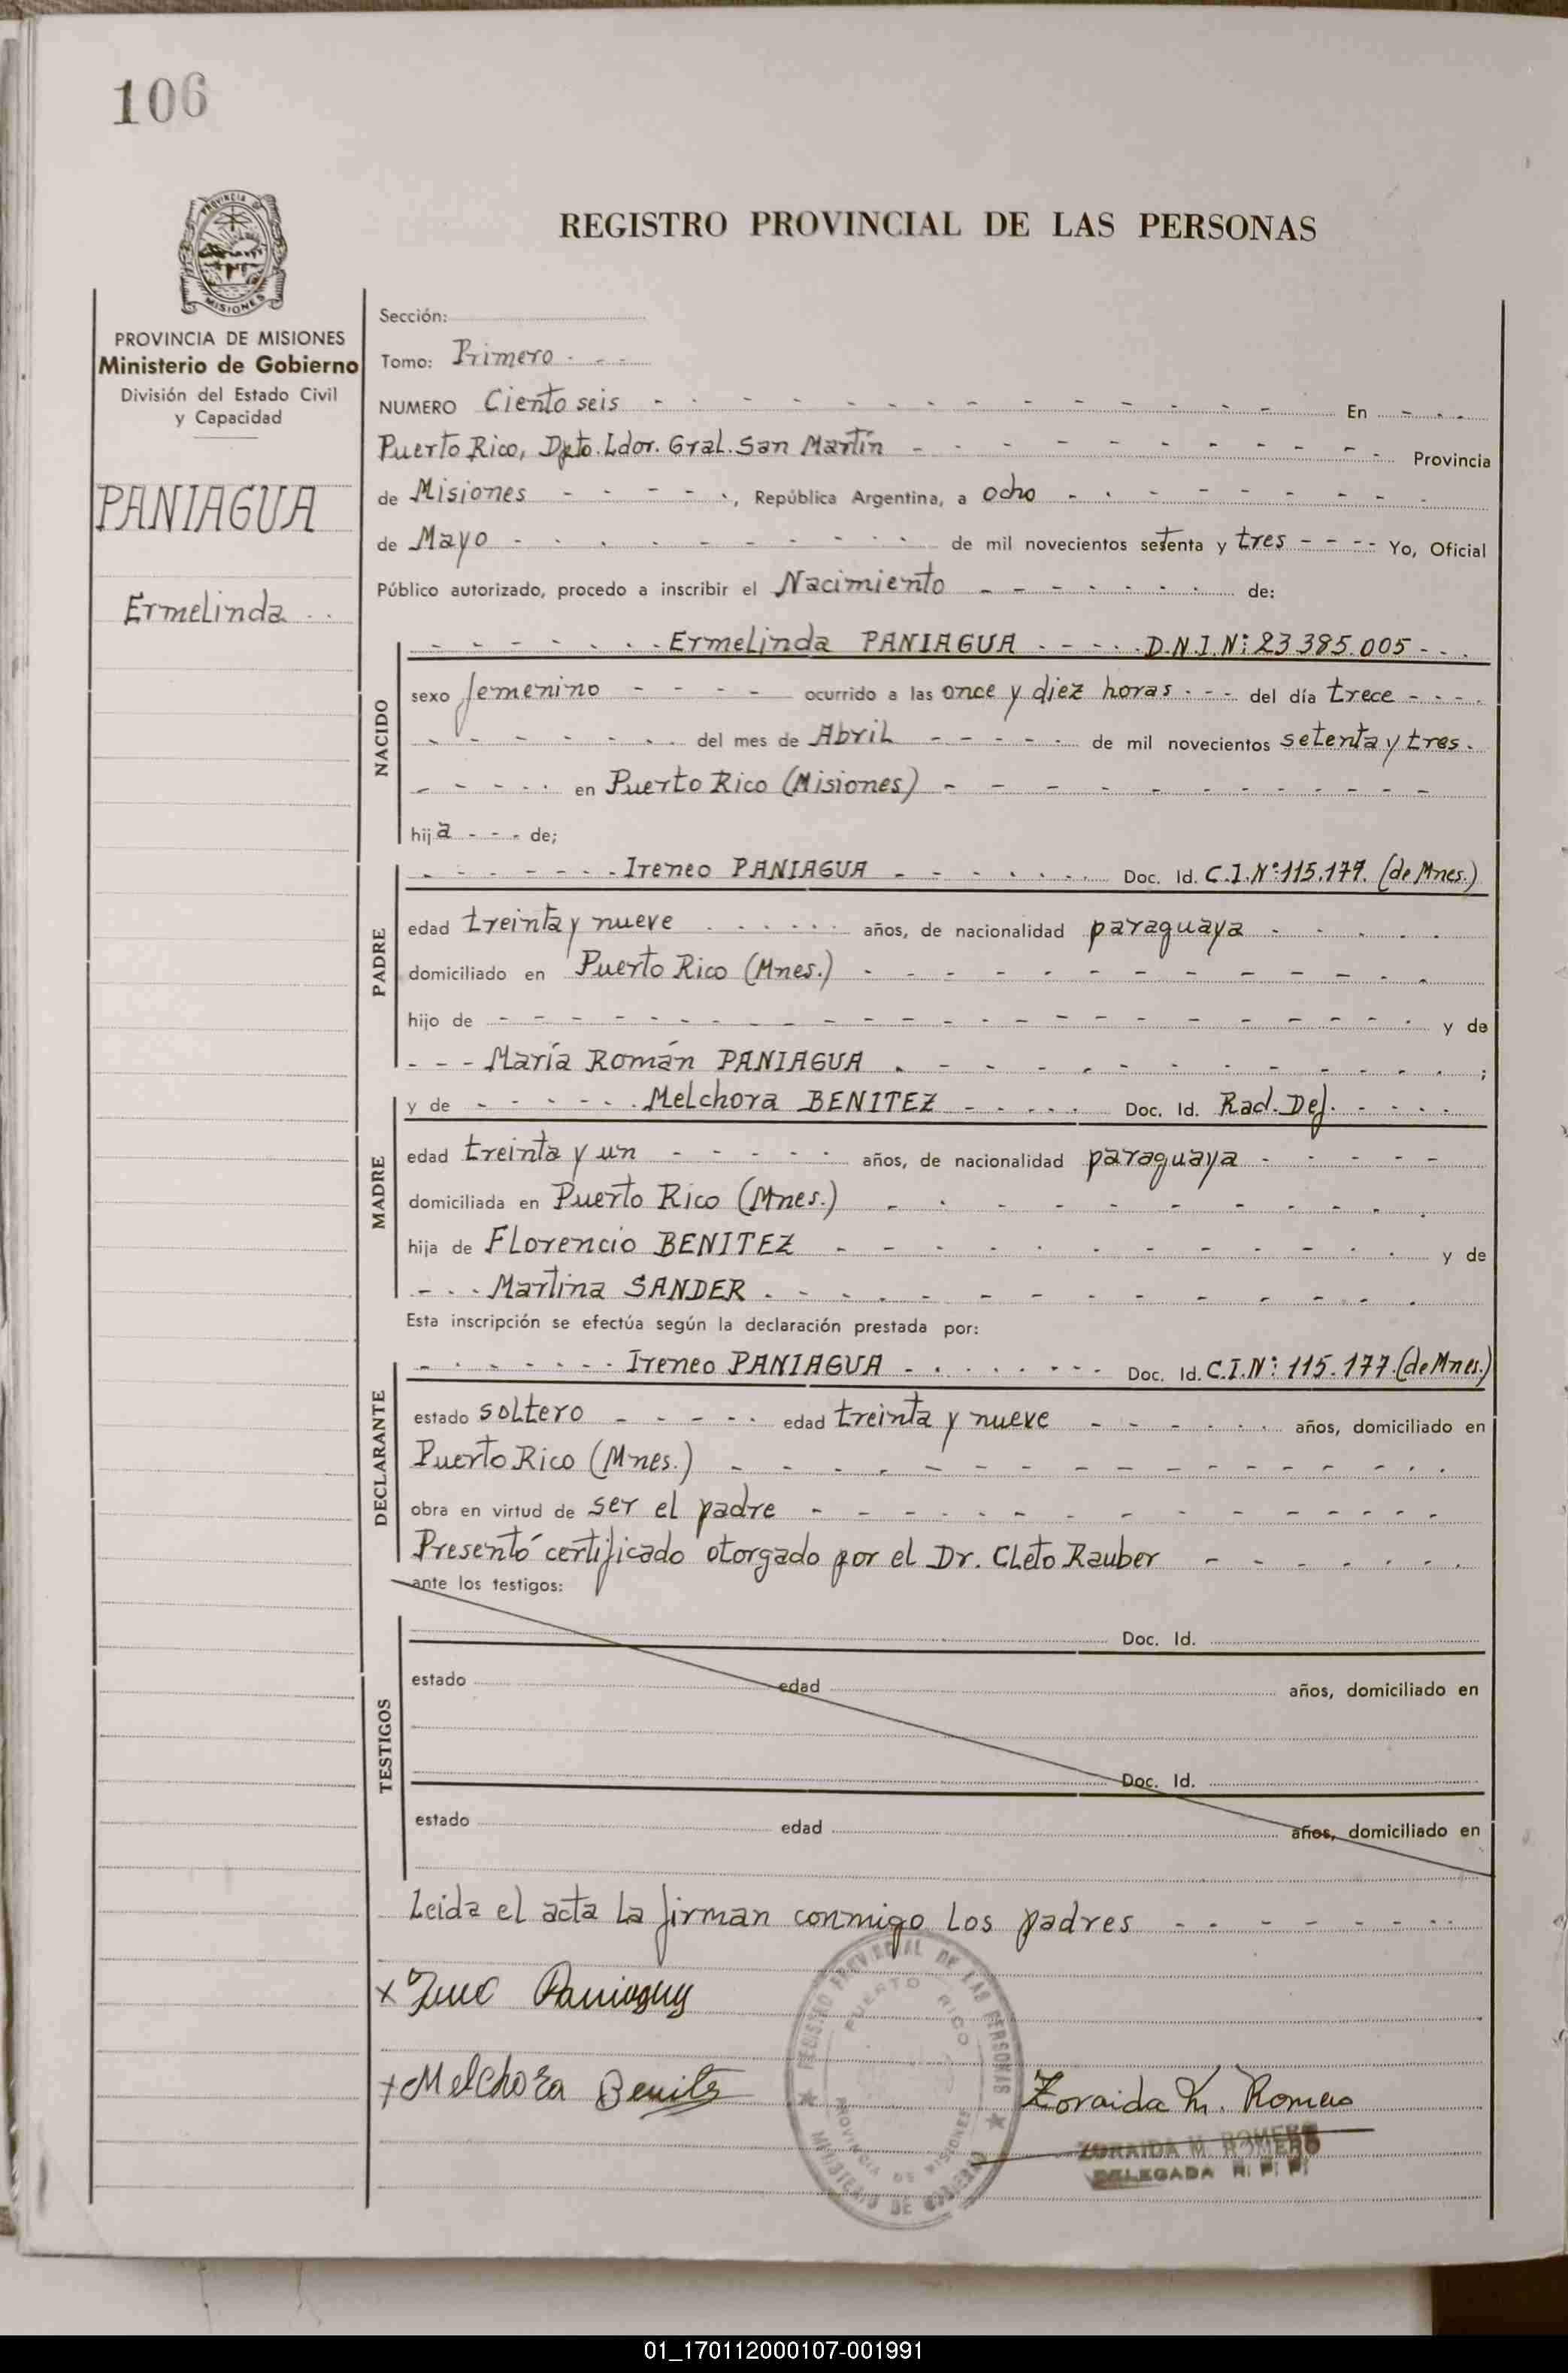 106
PROVINCIA
MISIONES
REGISTRO PROVINCIAL DE LAS PERSONAS
PROVINCIA DE MISIONES
Ministerio de Gobierno
División del Estado Civil
y Capacidad
PANIAGUA
Ermelinda
Sección:
Tomo: Primero
NUMERO Ciento seis En
Puerto Rico, Dpto. Ldor. Gral. San Martín Provincia
de Misiones, República Argentina, a ocho
de Mayo de mil novecientos setenta y tres Yo, Oficial
Público autorizado, procedo a inscribir el Nacimiento de:
NACIDO
Ermelinda PANIAGUA D.N.I.Nº: 23.385.005
sexo femenino ocurrido a las once y diez horas del día trece
del mes de Abril de mil novecientos setenta y tres.
en Puerto Rico (Misiones)
hija de;
PADRE
Ireneo PANIAGUA Doc. Id. C.I.Nº: 115.177. (de Mnes.)
edad treinta y nueve años, de nacionalidad paraguaya
domiciliado en Puerto Rico (Mnes.)
hijo de y de
María Román PANIAGUA ;
MADRE
y de Melchora BENITEZ Doc. Id. Rad. Def.
edad treinta y un años, de nacionalidad paraguaya
domiciliada en Puerto Rico (Mnes.)
hija de Florencio BENITEZ y de
Martina SANDER
Esta inscripción se efectúa según la declaración prestada por:
DECLARANTE
Ireneo PANIAGUA Doc. Id. C.I.Nº: 115.177. (de Mnes.)
estado soltero edad treinta y nueve años, domiciliado en
Puerto Rico (Mnes.)
obra en virtud de ser el padre
Presentó certificado otorgado por el Dr. Cleto Rauber
ante los testigos:
TESTIGOS
Doc. Id.
estado edad años, domiciliado en
Doc. Id.
estado edad años, domiciliado en
Leida el acta la firman conmigo los padres
REGISTRO PROVINCIAL DE LAS PERSONAS
PUERTO RICO
PROVINCIA DE MISIONES
MINISTERIO DE GOBIERNO
x Paniagua
x Melchora Benites
Zoraida M. Romero
ZORAIDA M. ROMERO
DELEGADA R. P. P.
01_170112000107-001991